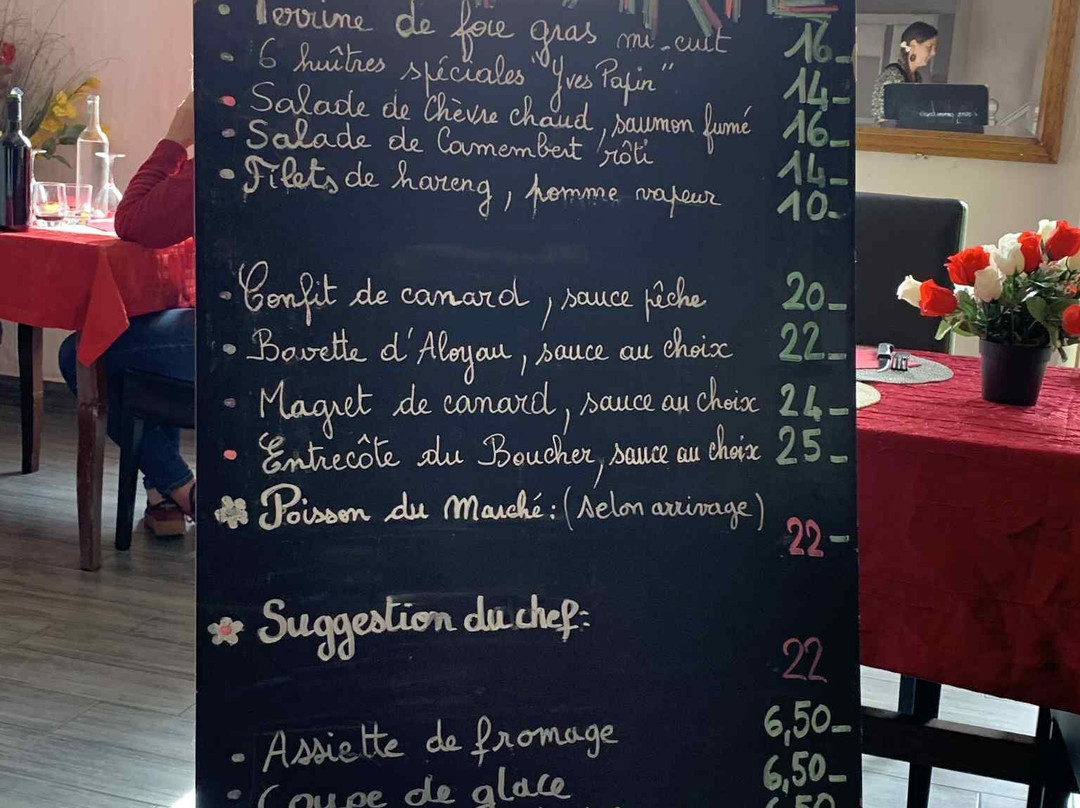 Terrine de foie gras mi-cuit 16-
6 huîtres spéciales "Yves Papin" 14-
Salade de Chèvre chaud, saumon fumé 16-
Salade de Camembert rôti 14-
Filets de hareng, pomme vapeur 10-
Confit de canard, sauce pêche 20-
Bavette d'Aloyau, sauce au choix 22-
Magret de canard, sauce au choix 24-
Entrecôte du Boucher, sauce au choix 25-
Poisson du Marché: (selon arrivage)
22-
Suggestion du chef:
22
Assiette de fromage 6,50-
Coupe de glace 6,50-
6,50